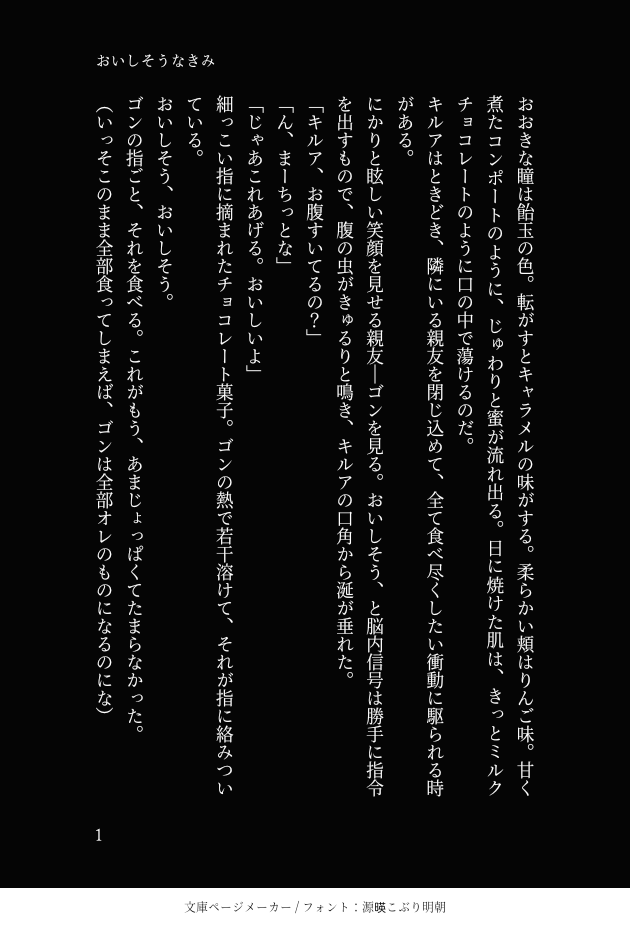 おいしそうなきみ
おおきな瞳は飴玉の色。転がすとキャラメルの味がする。柔らかい頬はりんご味。甘く
煮たコンポートのように、じゅわりと蜜が流れ出る。日に焼けた肌は、きっとミルク
チョコレートのように口の中で蕩けるのだ。
キルアはときどき、隣にいる親友を閉じ込めて、全て食べ尽くしたい衝動に駆られる時
がある。
にかりと眩しい笑顔を見せる親友―ゴンを見る。おいしそう、と脳内信号は勝手に指令
を出すもので、腹の虫がきゅるりと鳴き、キルアの口角から涎が垂れた。
「キルア、お腹すいてるの?」
「ん、まーちっとな」
「じゃあこれあげる。おいしいよ」
細っこい指に摘まれたチョコレート菓子。ゴンの熱で若干溶けて、それが指に絡みつい
ている。
おいしそう、おいしそう。
ゴンの指ごと、それを食べる。これがもう、あまじょっぱくてたまらなかった。
(いっそこのまま全部食ってしまえば、ゴンは全部オレのものになるのにな)
1
文庫ページメーカー / フォント:源暎こぶり明朝